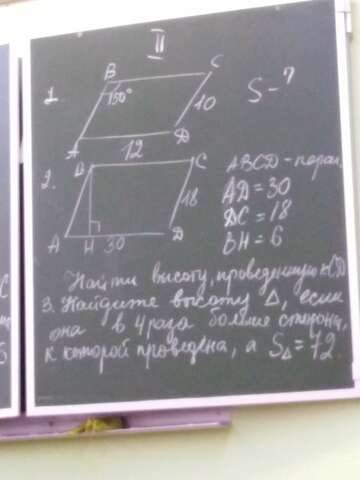 II
1.
B
C
150°
10
S - ?
A
D
12
2.
B
C
18
A
H
30
D
ABCD - парал.
AD = 30
DC = 18
BH = 6
Найти высоту, проведенную к CD
3. Найдите высоту Δ, если
она в 4 раза больше стороны,
к которой проведена, а SΔ = 72.